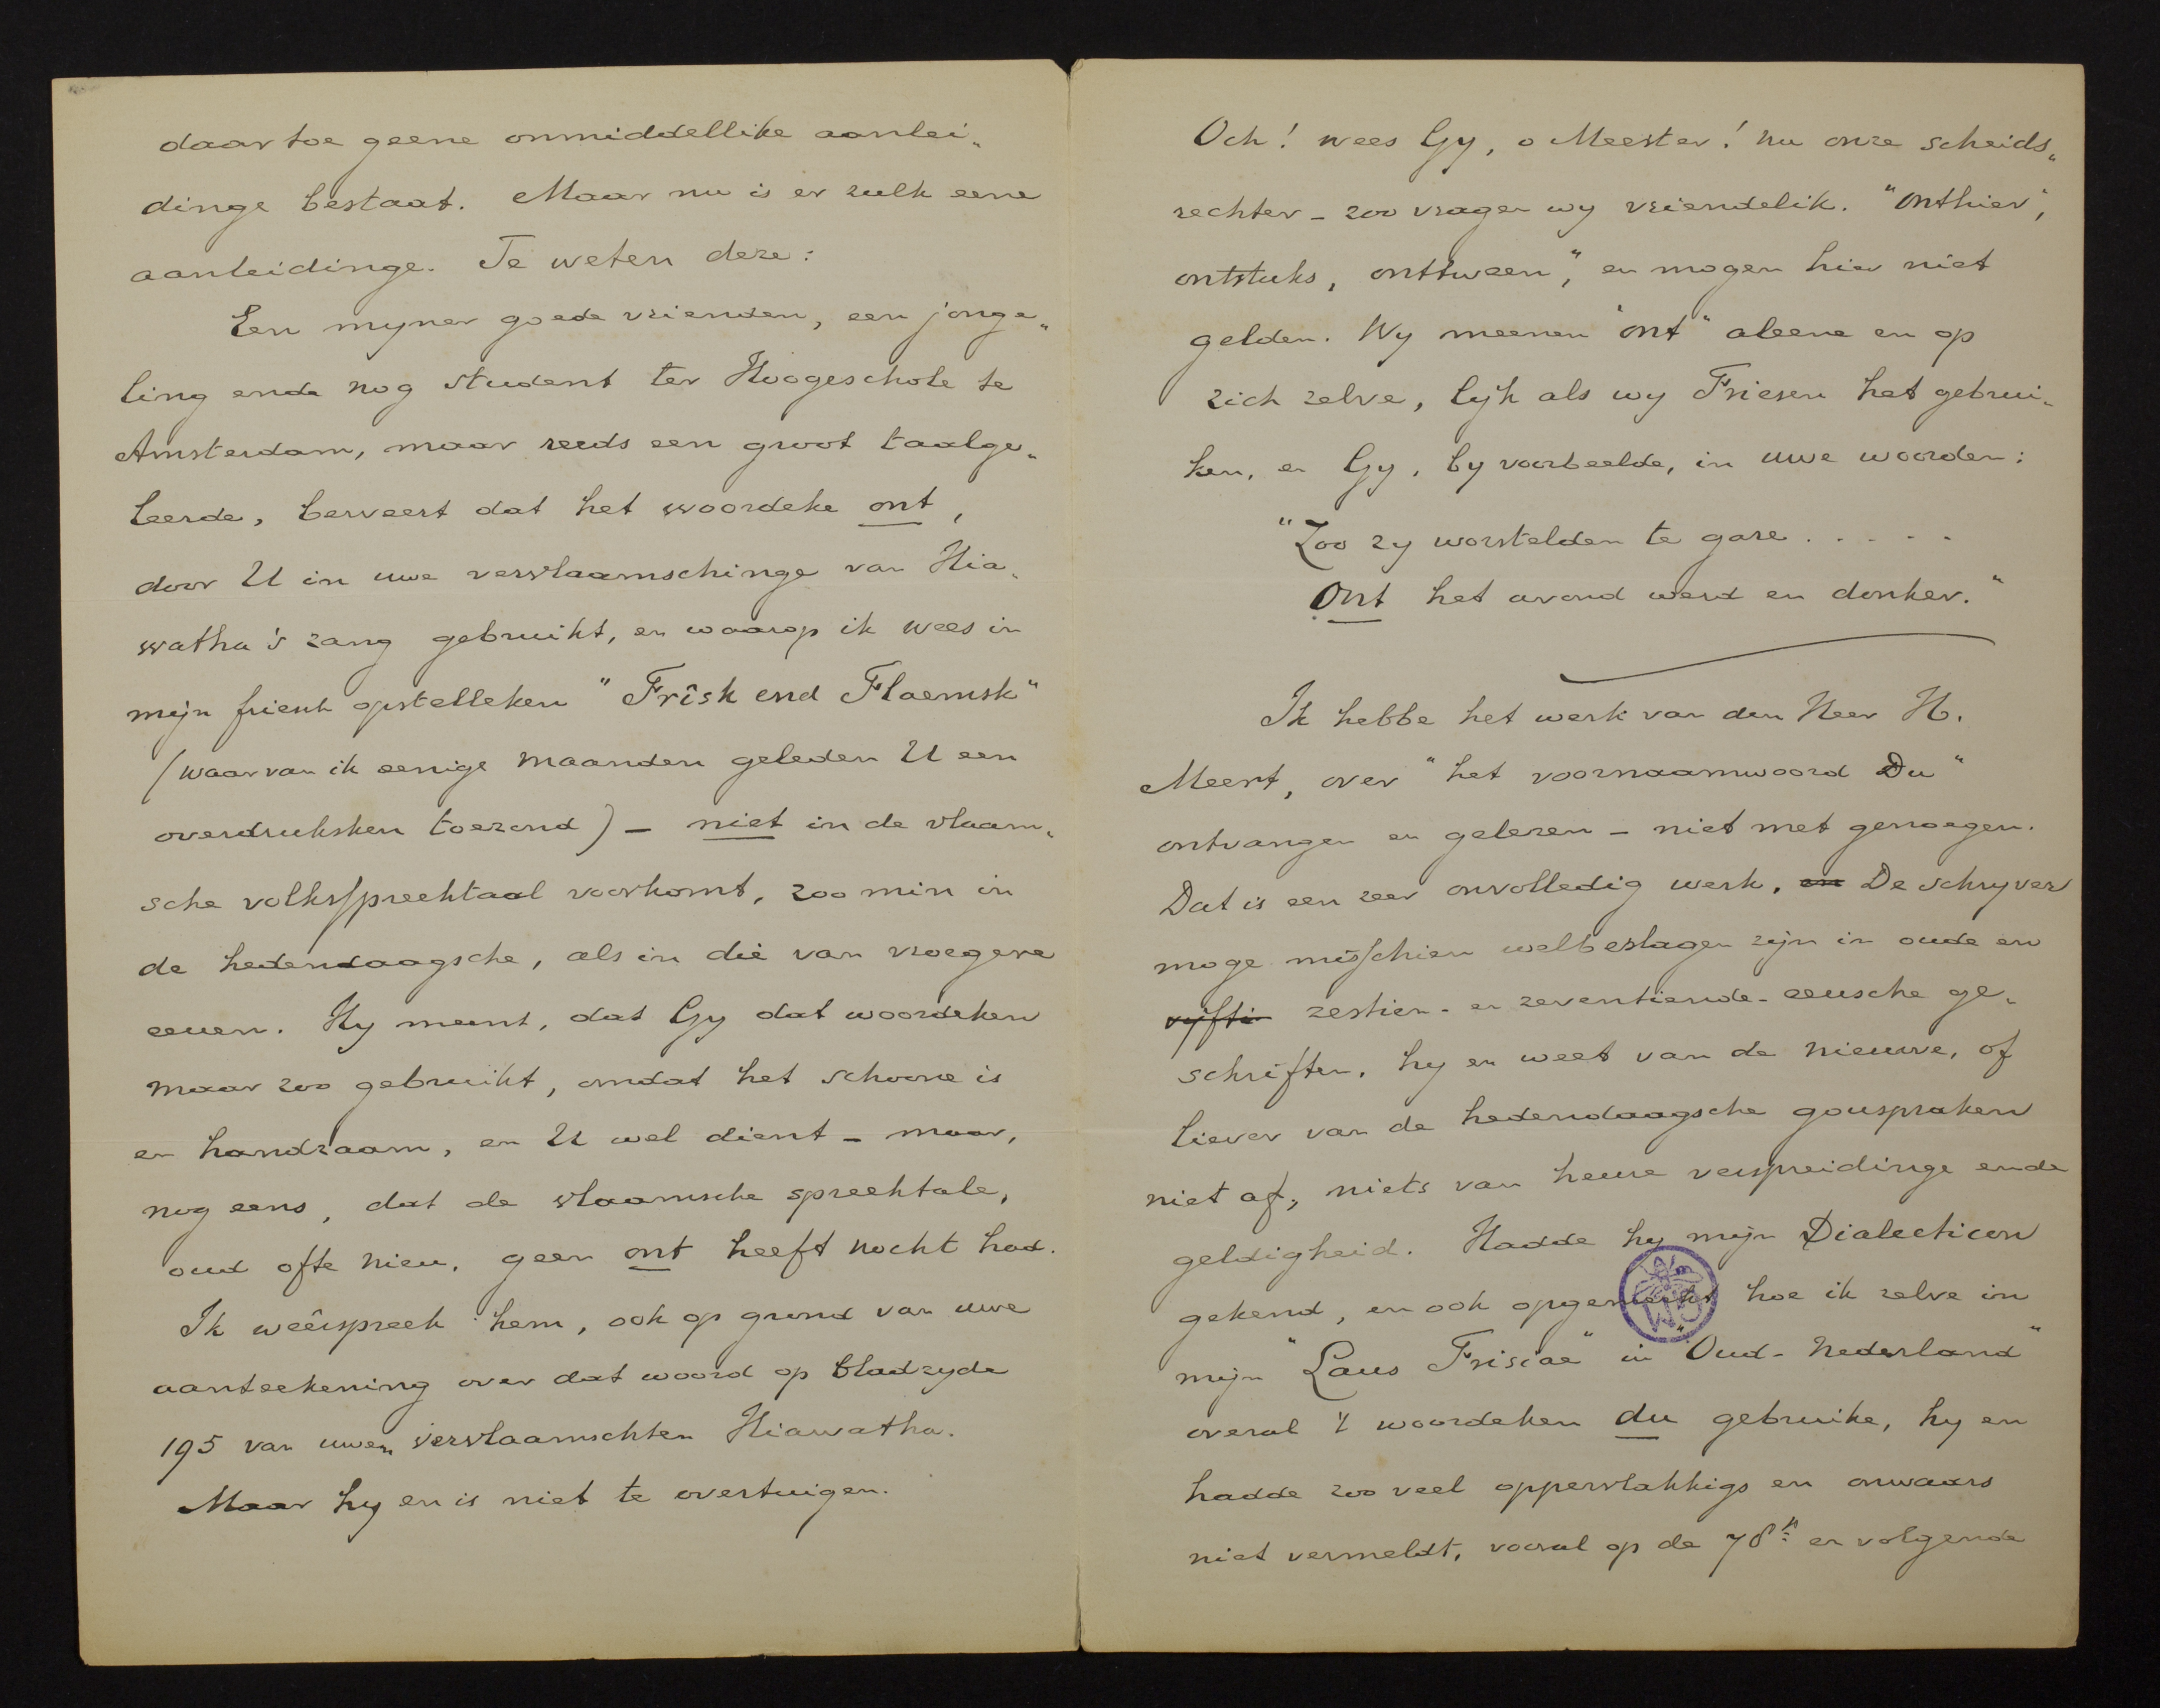 daartoe geene onmiddellike aanlei„
dinge bestaat. Maar nu is er zulk eene
aanleidinge. Te weten deze:
Een myner goede vrienden, een jonge„
ling ende nog student ter Hoogeschole te
Amsterdam, maar reeds een groot taalge„
leerde, beweert dat het woordeke ont,
door U in uwe vervlaamschinge van Hia„
watha's zang gebruikt, en waarop ik wees in
mijn friesch opstelleken "Frîsk end Flaemsk"
(waarvan ik eenige maanden geleden U een
overdruksken toezond) – niet in de vlaam„
sche volksspreektaal voorkomt, zoo min in
de hedendaagsche, als in die van vroegere
eeuen. Hy meent, dat Gy dat woordeken
maar zoo gebruikt, omdat het schoone is
en handzaam, en U wel dient – maar,
nog eens, dat de vlaamsche spreektale,
oud ofte nieu, geen ont heeft nocht had.
Ik weêrspreek hem, ook op grond van uwe
aanteekening over dat woord op bladzyde
195 van uwen vervlaamschten Hiawatha.
Maar hy en is niet te overtuigen.
Och! wees Gy, o Meester! nu onze scheids„
rechter – zoo vragen wy vriendelik. "Onthier",
ontstuks, onttween", en mogen hier niet
gelden. Wy meenen "ont" aleene en op
zich zelve, lijk als wy Friesen het gebrui„
ken, en Gy, by voorbeelde, in uwe woorden:
"Zoo zy worstelden te gare . . . . .
Ont het avond werd en donker."
Ik hebbe het werk van den Heer H.
Meert, over "het voornaamwoord Du"
ontvangen en gelezen – niet met genoegen.
Dat is een zeer onvolledig werk, en De schryver
moge misschien welbeslagen zijn in oude en
vyfti zestien- en zeventiende-eeusche ge„
schriften, hy en weet van de nieuwe, of
liever van de hedendaagsche gouspraken
niet af, niets van heure verspreidinge ende
geldigheid. Hadde hy mijn Dialecticon
gekend, en ook opgemerkt hoe ik zelve in
mijn "Laus Frisiae" in "Oud-Nederland"
overal 't woordeken du gebruike, hy en
hadde zoo veel oppervlakkigs en onwaars
niet vermeldt, vooral op de 78ste en volgende